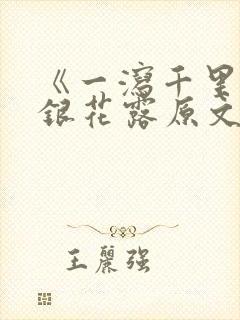 《一瀉千里
銀花露原文
王麗强